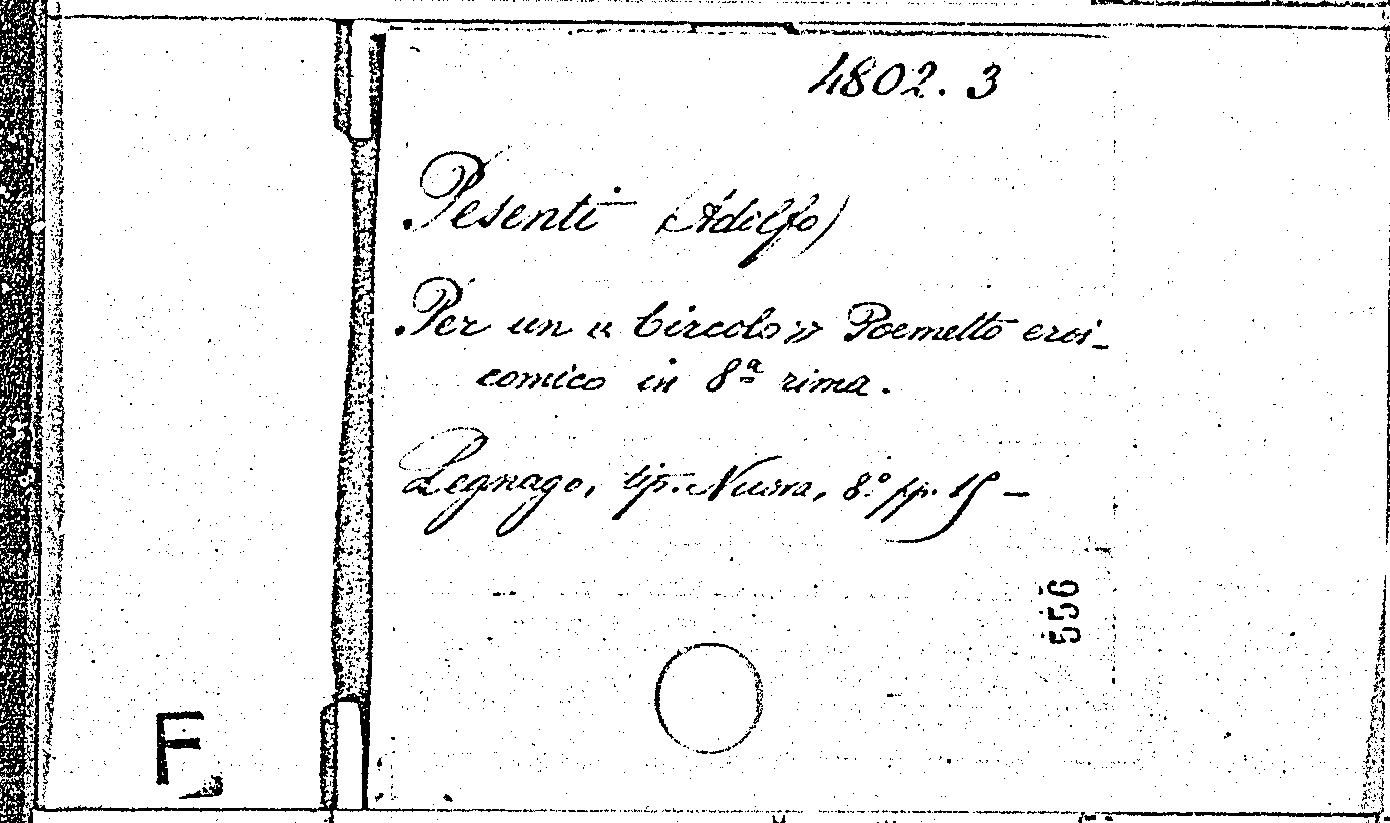 4802. 3
Pesenti (Adolfo)
Per un « Circolo » Poemetto eroi-
comico in 8ª rima.
Legnago, tip. Nuova, 8.º pp. 15 –
556
F